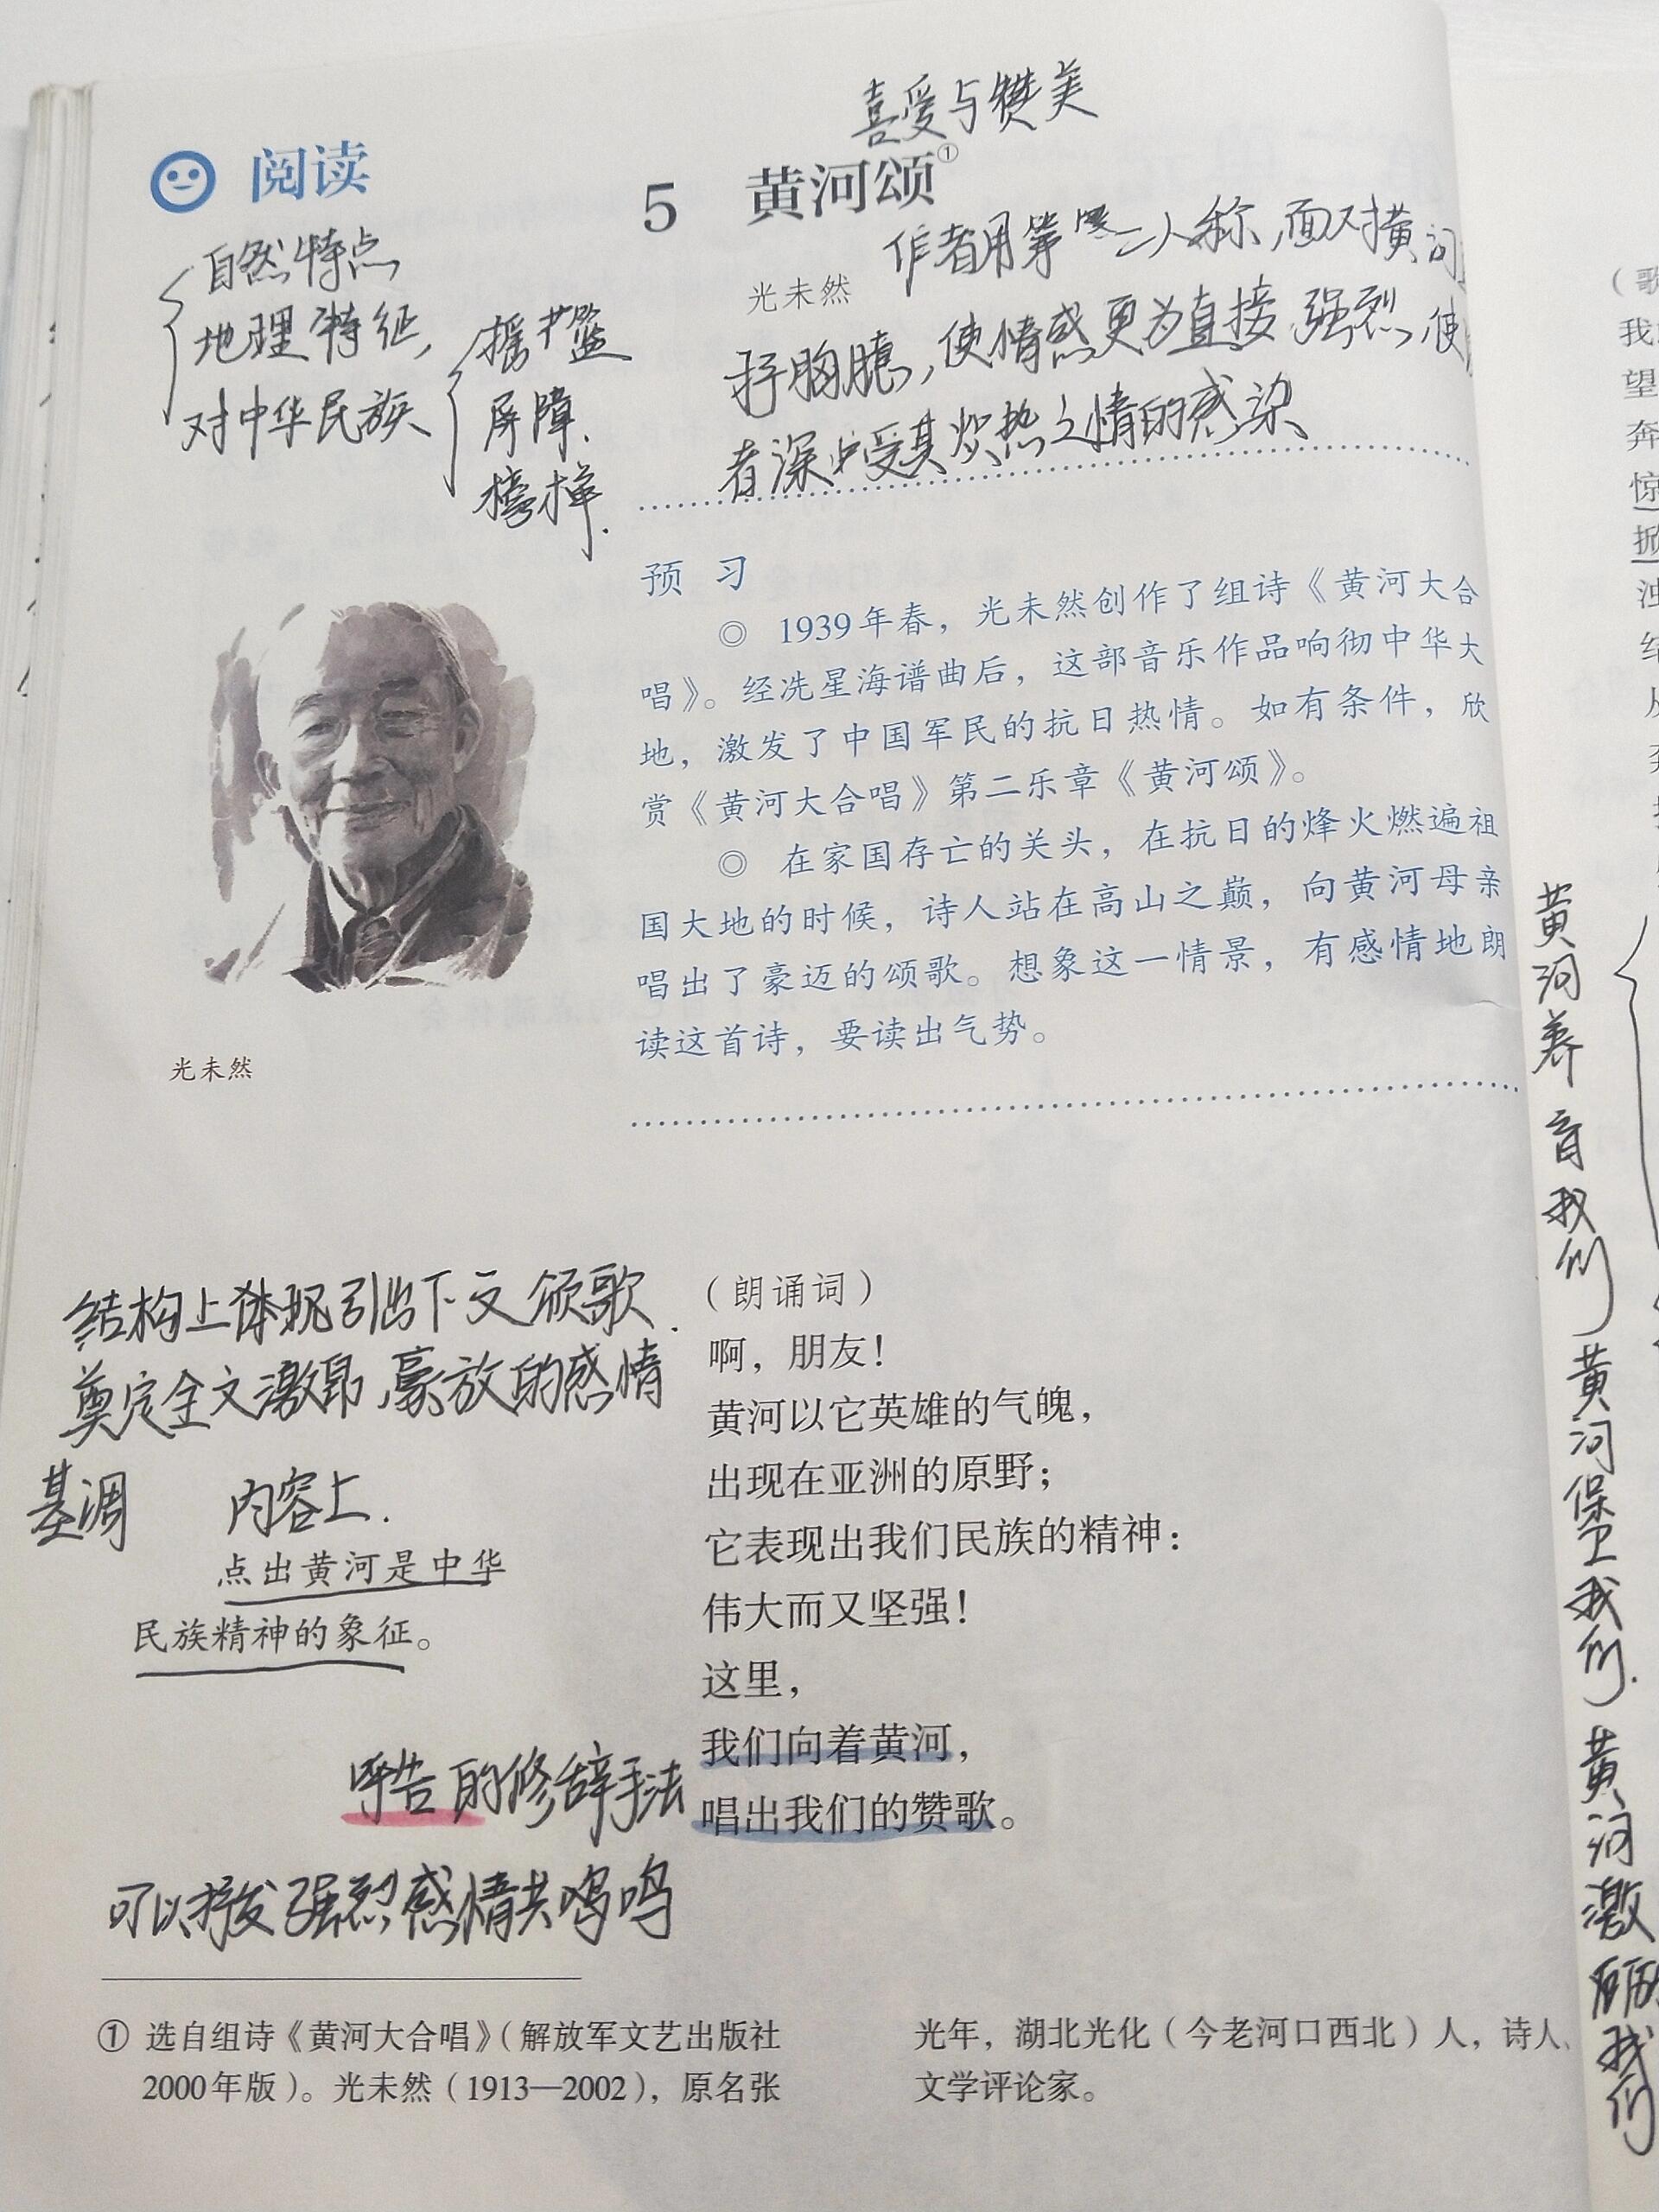 喜爱与赞美
阅读
5 黄河颂①
光未然
作者用第二人称,面对黄河
抒胸臆,使情感更为直接、强烈,使
者深受其炽热之情的感染
自然特点
地理特征,
对中华民族
摇篮
屏障、
榜样.
预 习
◎ 1939年春,光未然创作了组诗《黄河大合
唱》。经冼星海谱曲后,这部音乐作品响彻中华大
地,激发了中国军民的抗日热情。如有条件,欣
赏《黄河大合唱》第二乐章《黄河颂》。
◎ 在家国存亡的关头,在抗日的烽火燃遍祖
国大地的时候,诗人站在高山之巅,向黄河母亲
唱出了豪迈的颂歌。想象这一情景,有感情地朗
读这首诗,要读出气势。
光未然
结构上体现引出下文颂歌.
奠定全文激昂,豪放的感情
基调 内容上.
点出黄河是中华
民族精神的象征。
呼告的修辞手法
可以抒发强烈感情共鸣
(朗诵词)
啊,朋友!
黄河以它英雄的气魄,
出现在亚洲的原野;
它表现出我们民族的精神:
伟大而又坚强!
这里,
我们向着黄河,
唱出我们的赞歌。
① 选自组诗《黄河大合唱》(解放军文艺出版社
2000年版)。光未然(1913—2002),原名张
光年,湖北光化(今老河口西北)人,诗人、
文学评论家。
黄河养育我们 黄河保卫我们. 黄河激励我们
(歌
我
望
奔
惊
掀
浊